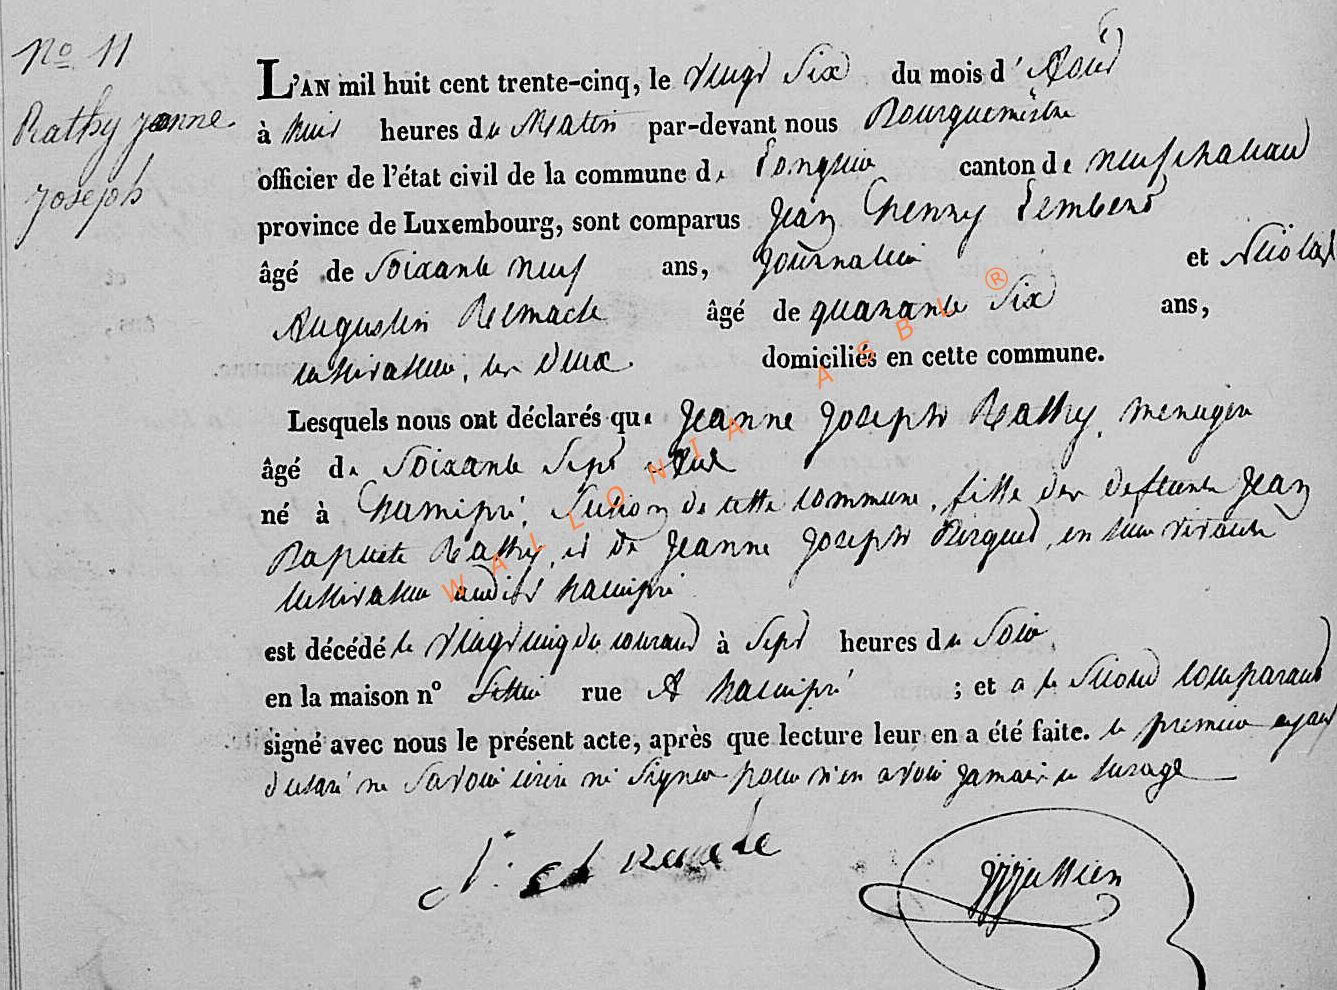 No 11
Rathy Jeanne
Joseph
L'AN mil huit cent trente-cinq, le vingt Six du mois d'Août
à huit heures du Matin par-devant nous Bourguemestre
officier de l'état civil de la commune de Longlier canton de neufchateau
province de Luxembourg, sont comparus Jean henry Lembert
âgé de Soixante neuf ans, Journalier et Nicolas
Augustin Remacle âgé de quarante Six ans,
cultivateur, les deux domiciliés en cette commune.
Lesquels nous ont déclarés que Jeanne Joseph Rathy, menagere
âgé de Soixante Sept ans
né à hamipré, Section de cette commune, fille des defunts Jean
Baptiste Rathy, et de Jeanne Joseph, en leur vivante
cultivateur audit hamipré
est décédé le vingt cinq du courant à Sept heures du Soir
en la maison nº rue A hamipré ; et a le Second comparant
signé avec nous le présent acte, après que lecture leur en a été faite. le premier ayant
declaré ne Savoir écrire ni Signer pour n'en avoir jamais eu l'usage
WALLONIA ASBL ®